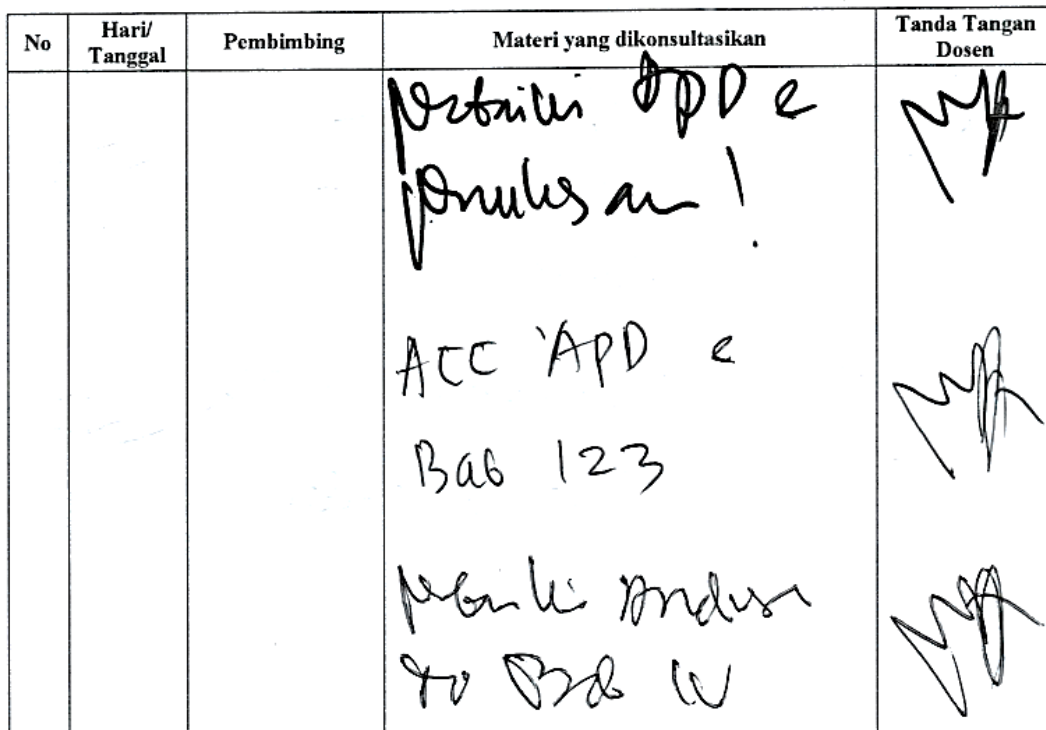 No Hari/ Tanggal Pembimbing Materi yang dikonsultasikan Tanda Tangan Dosen
Perbaiki APD &
penulisan !
ACC APD &
Bab 123
Perbaiki
Bab IV